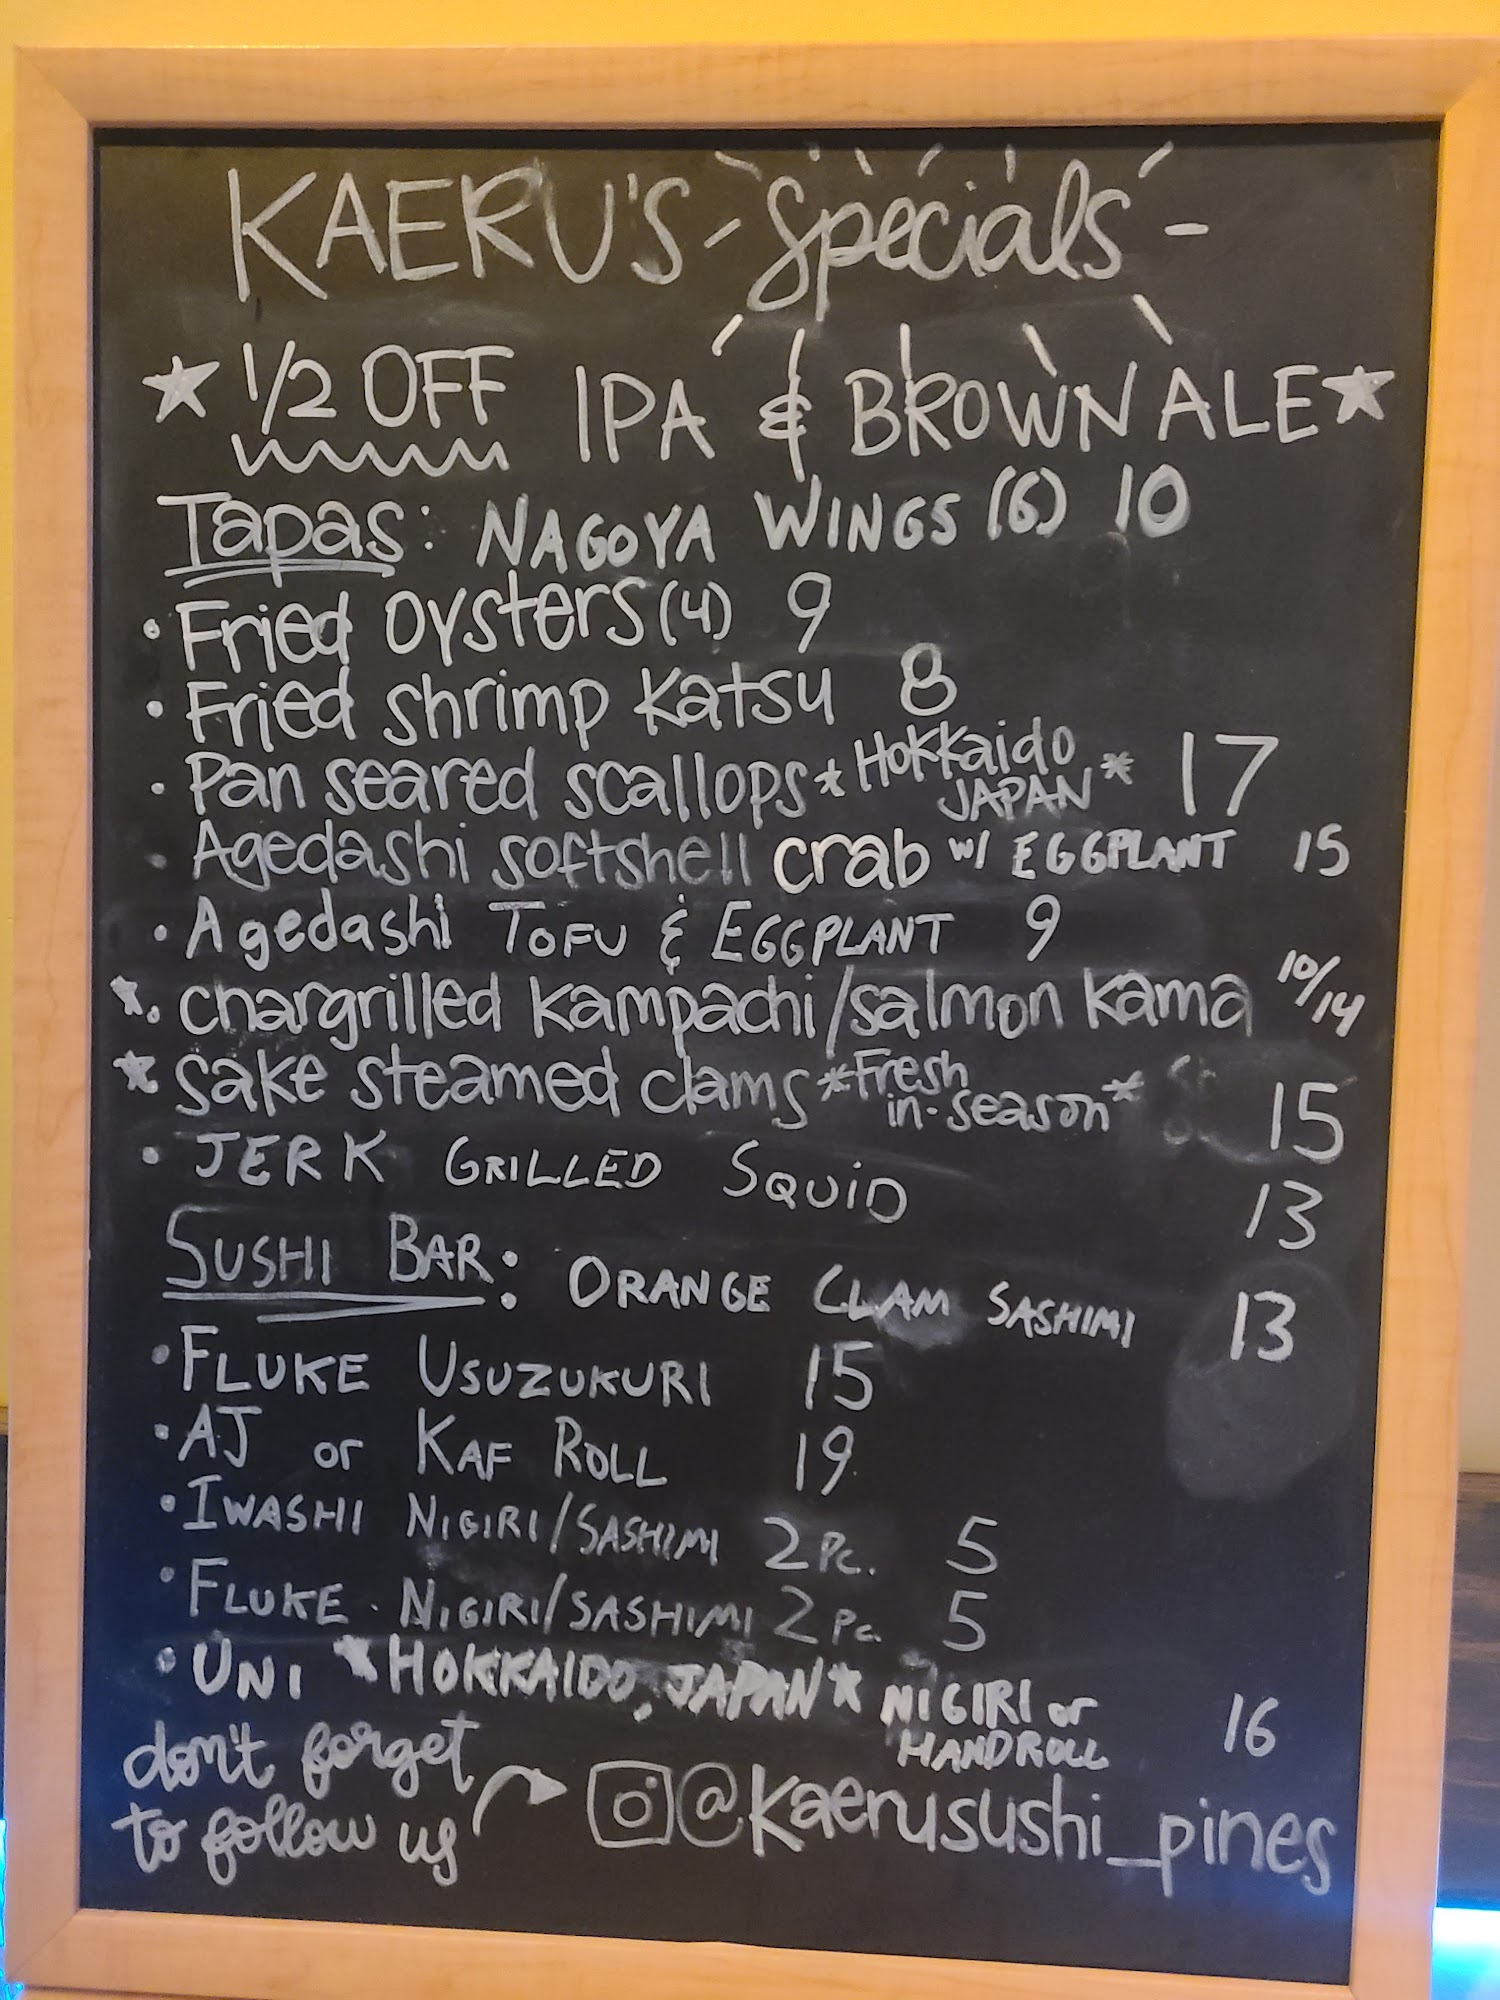 KAERU'S - Specials -
1/2 OFF IPA & BROWN ALE
Tapas: NAGOYA WINGS (6) 10
• Fried oysters (4) 9
• Fried shrimp Katsu 8
• Pan seared scallops *Hokkaido JAPAN* 17
• Agedashi softshell crab w/ EGGPLANT 15
• Agedashi TOFU & EGGPLANT 9
★• chargrilled kampachi/salmon kama 10/14
★ sake steamed clams *Fresh in-season* 15
• JERK GRILLED SQUID 13
SUSHI BAR: ORANGE CLAM SASHIMI 13
• FLUKE USUZUKURI 15
• AJ or KAF ROLL 19
• IWASHI NIGIRI/SASHIMI 2 Pc. 5
• FLUKE NIGIRI/SASHIMI 2 Pc. 5
• UNI *HOKKAIDO, JAPAN* NIGIRI or HANDROLL 16
don't forget
to follow us @kaerusushi_pines